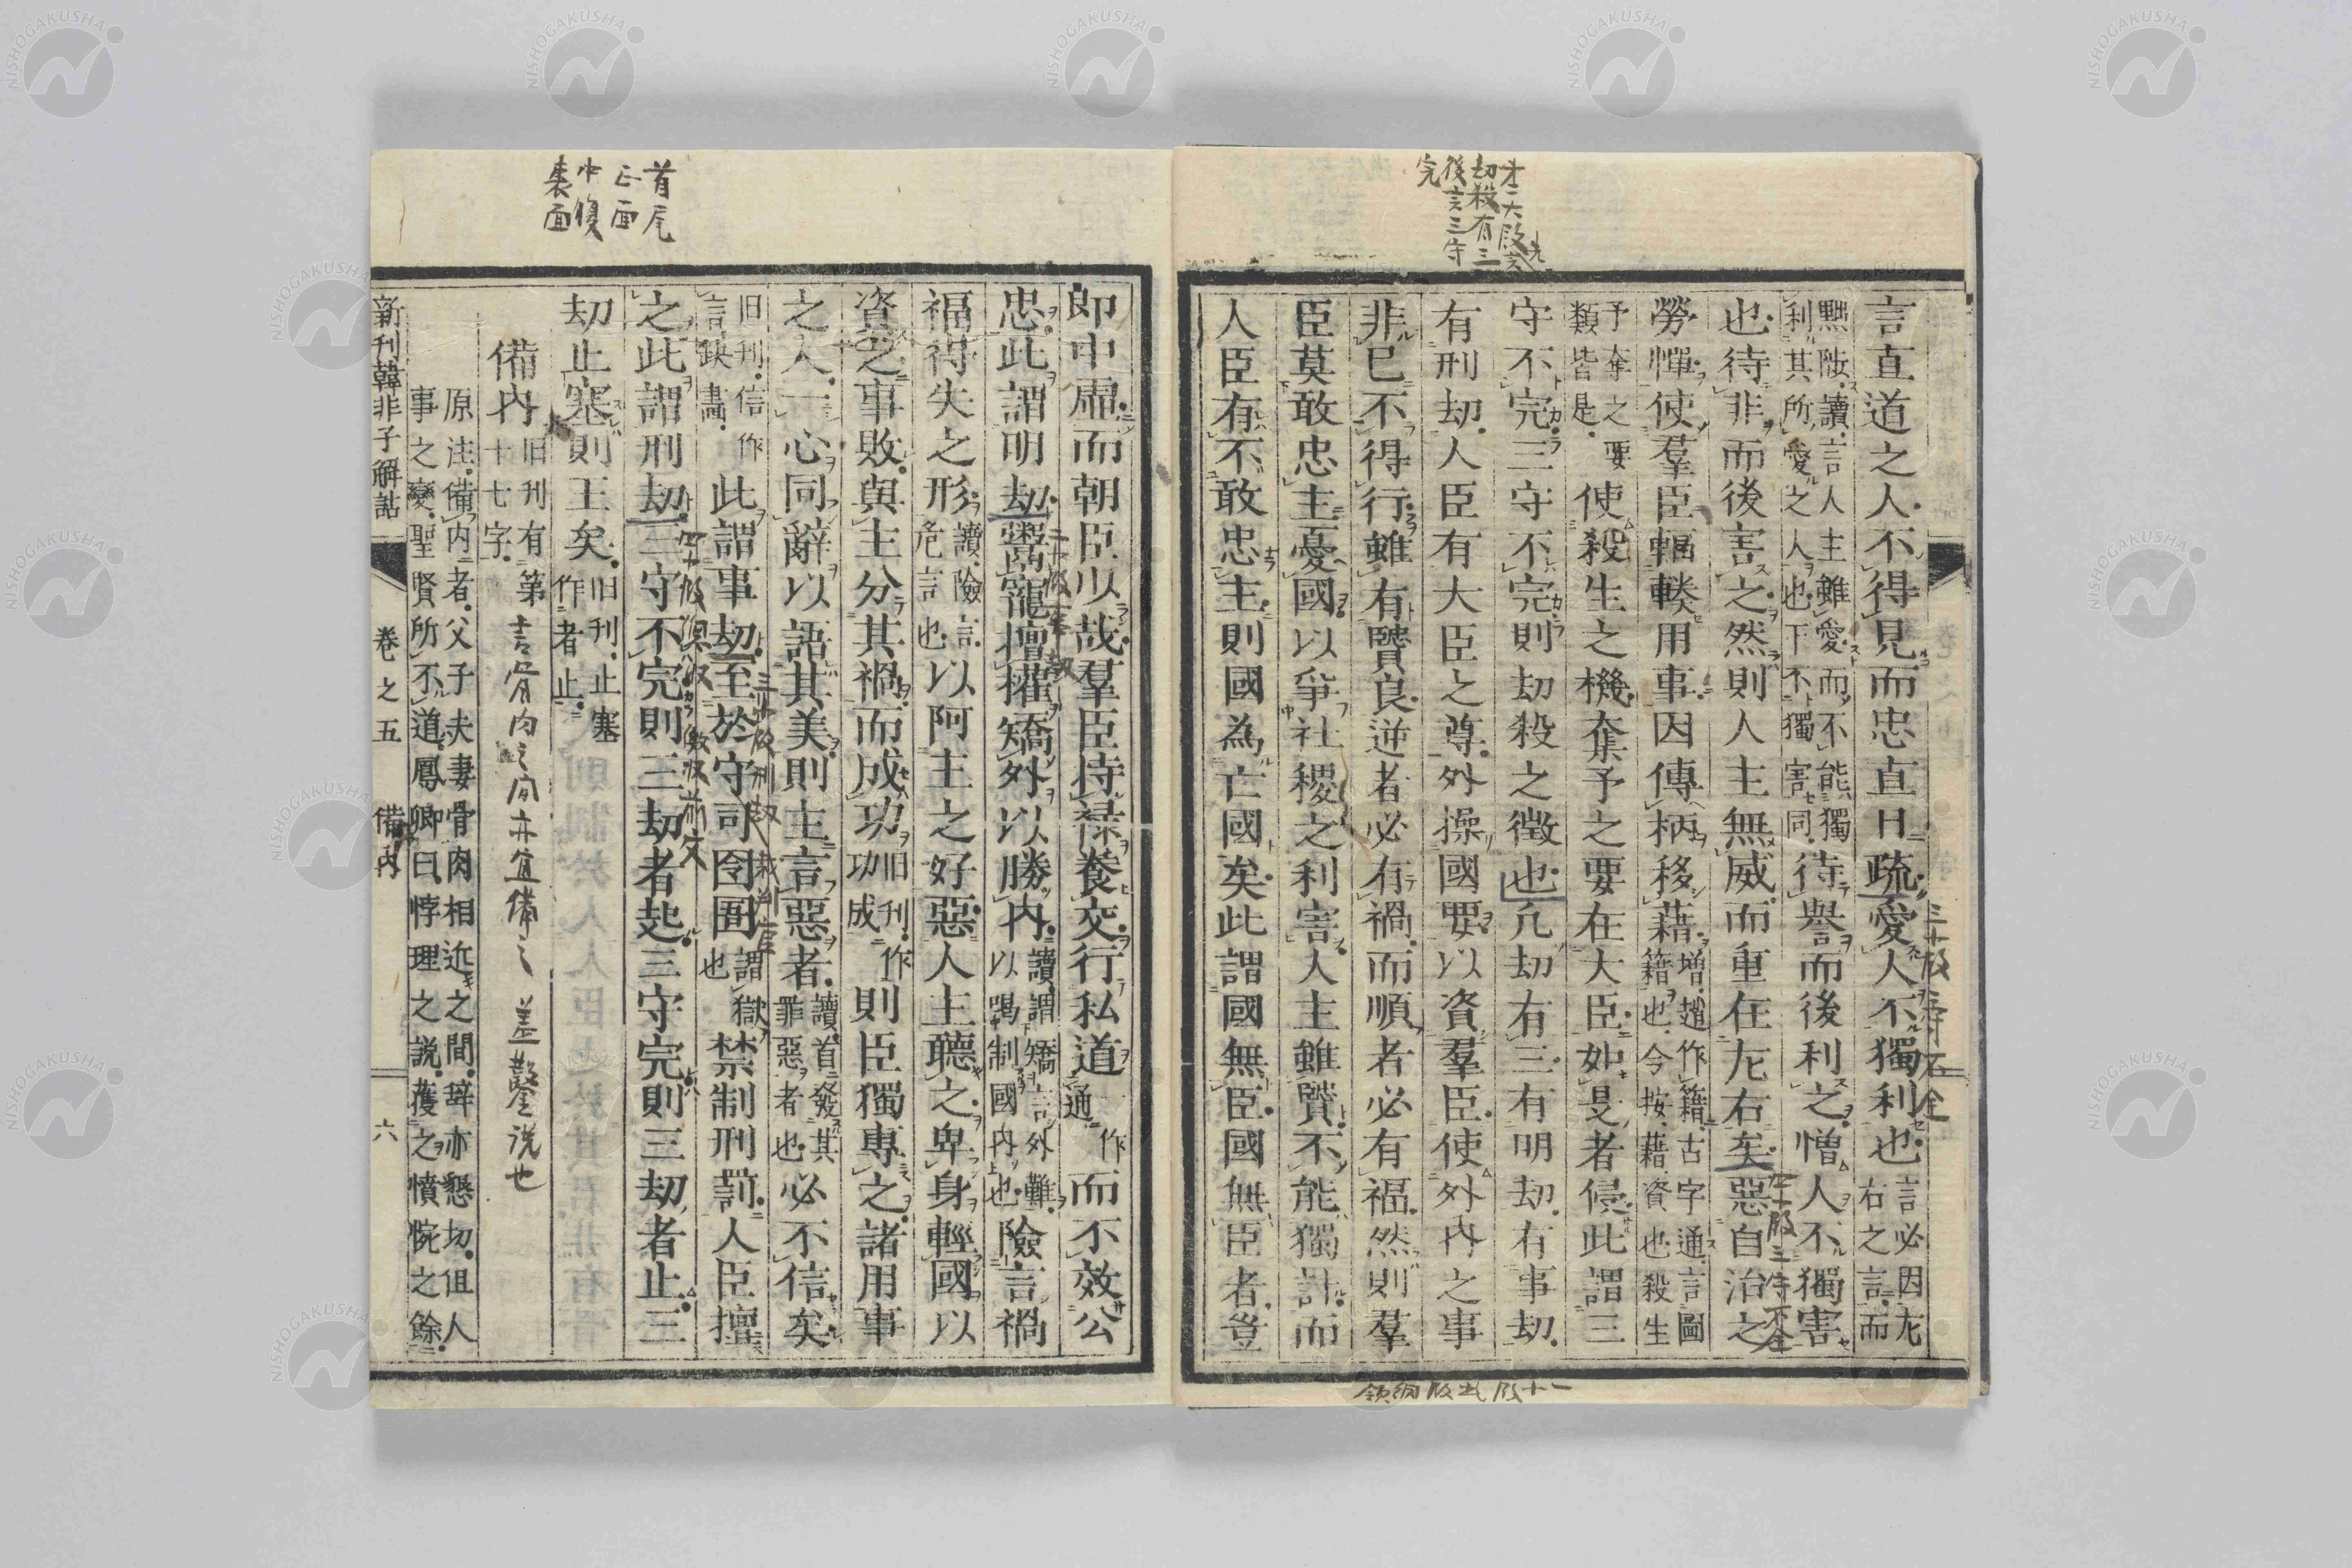 言直道之人不得見而忠直日疏愛人不獨利也言必因左右之言而
黙陟讀言人主雖愛而不能獨利其所愛之人也下不獨害同待譽而後利之憎人不獨害
也待非而後害之然則人主無威而重在左右矣惡自治之
勞憚使羣臣輻輳用事因傳柄移藉增趙作籍古字通言圖籍也今按藉資也殺生
予奪之要類皆是使殺生之機奪予之要在大臣如是者侵此謂三
守不完三守不完則劫殺之徴也凢劫有三有明劫有事劫
有刑劫人臣有大臣之尊外操國要以資羣臣使外內之事
非已不得行雖有賢良逆者必有禍而順者必有福然則羣
臣莫敢忠主憂國以爭社稷之利害人主雖賢不能獨計而
人臣有不敢忠主則國為亡國矣此謂國無臣國無臣者豈
郎中虛而朝臣少哉羣臣持祿養交行私道一作通而不效公
忠此謂明劫鬻寵擅權矯外以勝內讀謂矯言外難以喝制國內也險言禍
福得失之形讀險言危言也以阿主之好惡人主聽之卑身輕國以
資之事敗與主分其禍而成功旧刋作功成則臣獨專之諸用事
之人一心同辭以語其美則主言惡者讀首發其罪惡者也必不信矣
旧刋信作言缺畫此謂事劫至於守司囹圄謂獄也禁制刑罰人臣擅
之此謂刑劫三守不完則三劫者起三守完則三劫者止三
劫止塞則王矣旧刋止塞作者止
備內旧刋有第十七字
原注備內者父子夫妻骨肉相近之間辞亦懇切但人
事之變聖賢所不道鳳卿曰悖理之說蓋之憤惋之餘
新刊韓非子解詁 卷之五 備内 六
首尾
正面
中腹
裏面
劫殺有三
後言三守
完
言骨肉之间亦宜備之 盖鑿说也